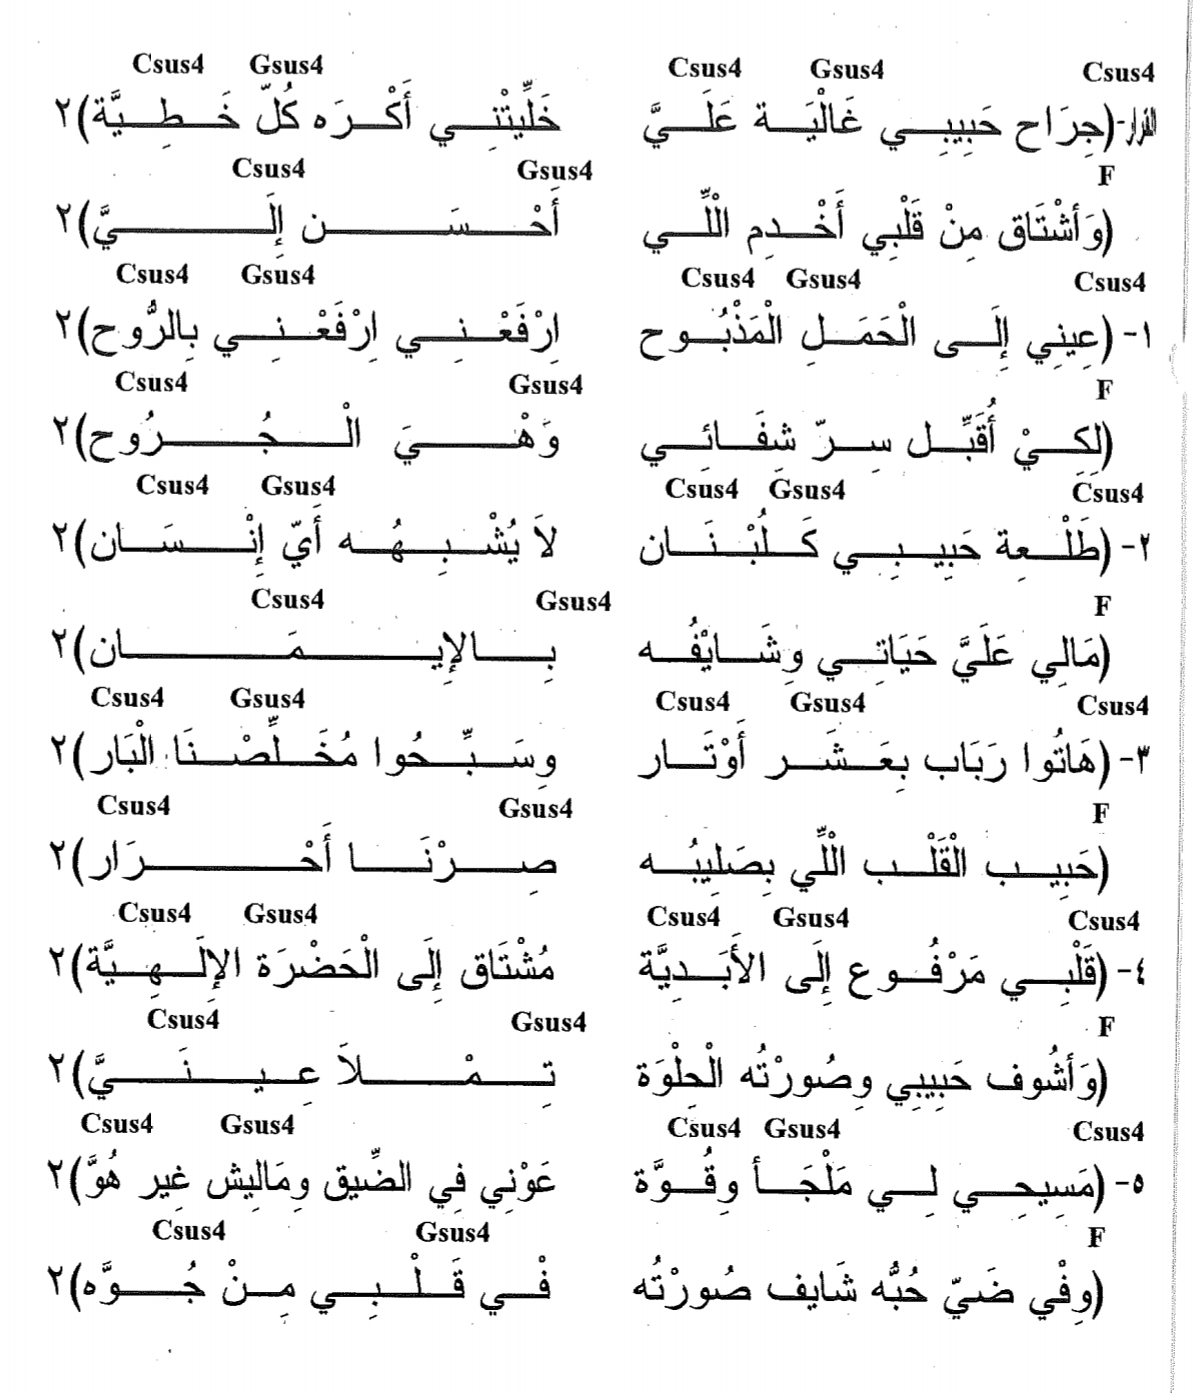 Csus4 Gsus4 Csus4 Gsus4 Csus4
القرار-(جِرَاح حَبِيبِي غَالْيَة عَلَيَّ خَلِّيتْنِي أَكْرَه كُلّ خَطِيَّة)٢
Csus4 Gsus4 F
(وَأشْتَاق مِنْ قَلْبِي أَخْدِم اللِّي أَحْسَن إِلَيَّ)٢
Csus4 Gsus4 Csus4 Gsus4 Csus4
١- (عِينِي إِلَى الْحَمَلِ الْمَذْبُوح اِرْفَعْنِي اِرْفَعْنِي بِالرُّوح)٢
Csus4 Gsus4 F
(لِكِيْ أُقَبِّل سِرّ شفَائي وَهْيَ الْجُرُوح)٢
Csus4 Gsus4 Csus4 Gsus4 Csus4
٢- (طَلْعِة حَبِيبِي كَلُبْنَان لاَ يُشْبِهُه أَيّ إِنْسَان)٢
Csus4 Gsus4 F
(مَالِي عَلَيَّ حَيَاتِي وِشَايْفُه بِالإِيمَان)٢
Csus4 Gsus4 Csus4 Gsus4 Csus4
٣- (هَاتُوا رَبَاب بِعَشَر أَوْتَار وِسَبِّحُوا مُخَلِّصْنَا الْبَار)٢
Csus4 Gsus4 F
(حَبِيب الْقَلْب اللِّي بِصَلِيبُه صِرْنَا أَحْرَار)٢
Csus4 Gsus4 Csus4 Gsus4 Csus4
٤- (قَلْبِي مَرْفُوع إِلَى الأَبَدِيَّة مُشْتَاق إِلَى الْحَضْرَة الإِلَهِيَّة)٢
Csus4 Gsus4 F
(وَأشُوف حَبِيبِي وِصُورْتُه الْحِلْوَة تِمْلاَ عِينَيَّ)٢
Csus4 Gsus4 Csus4 Gsus4 Csus4
٥- (مَسِيحِي لِي مَلْجَأ وِقُوَّة عَوْنِي فِي الضِّيق وِمَالِيش غِير هُوَّ)٢
Csus4 Gsus4 F
(وِفْي ضَيّ حُبُّه شَايف صُورْتُه فْي قَلْبِي مِنْ جُوَّه)٢